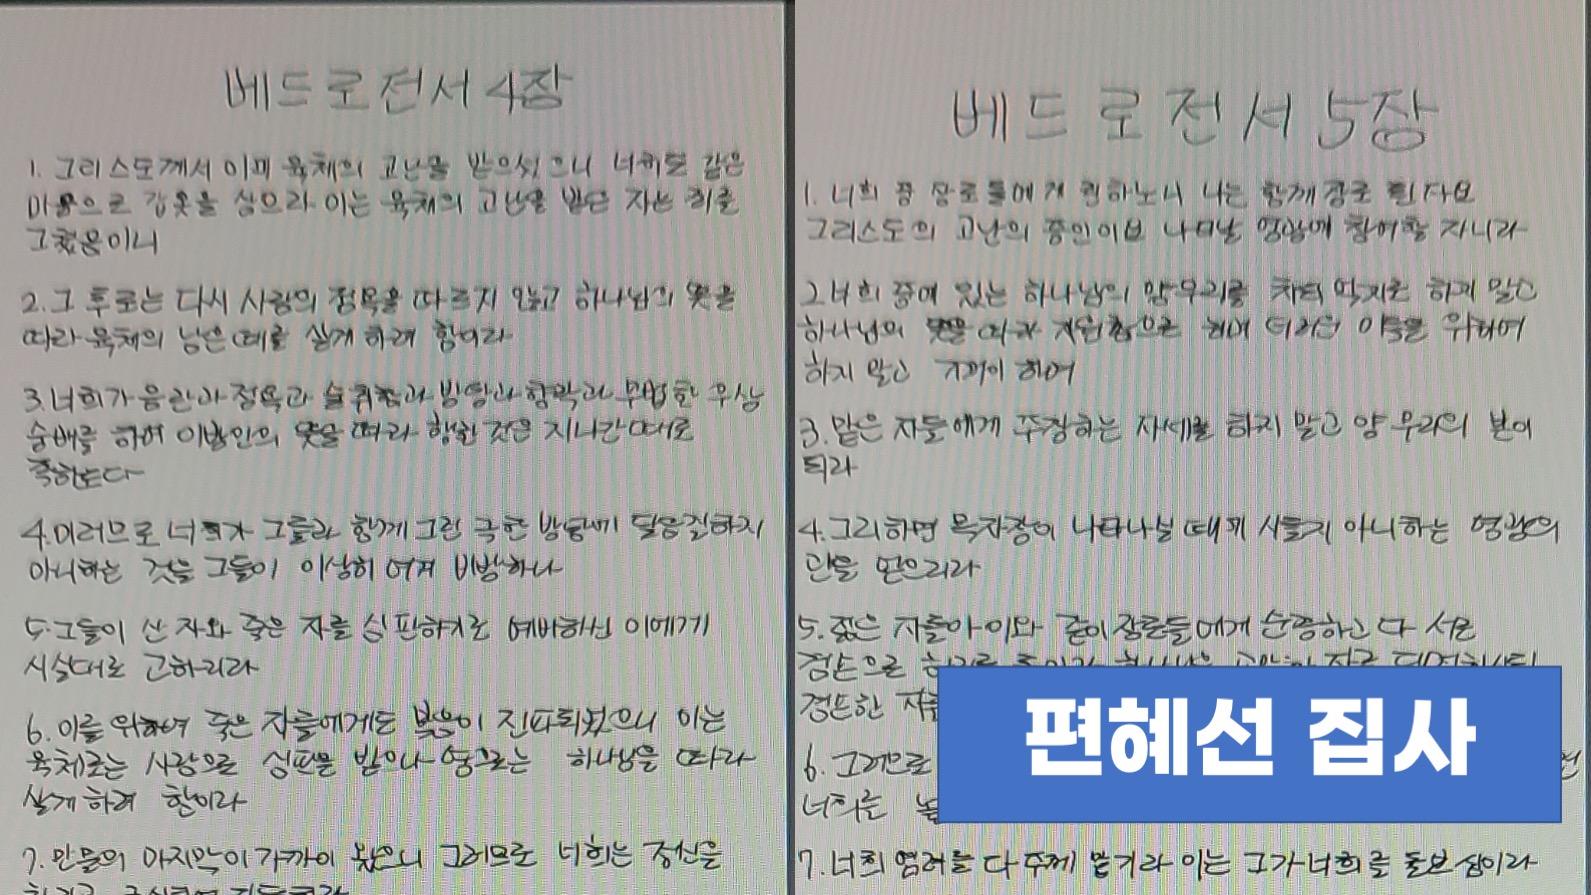 베드로전서 4장
1. 그리스도께서 이미 육체의 고난을 받으셨으니 너희도 같은
마음으로 갑옷을 삼으라 이는 육체의 고난을 받은 자는 죄를
그쳤음이니
2. 그 후로는 다시 사람의 정욕을 따르지 않고 하나님의 뜻을
따라 육체의 남은 때를 살게 하려 함이라
3. 너희가 음란과 정욕과 술취함과 방탕과 향락과 무법한 우상
숭배를 하여 이방인의 뜻을 따라 행한 것은 지나간 때로
족하도다
4. 이러므로 너희가 그들과 함께 그런 극한 방탕에 달음질하지
아니하는 것을 그들이 이상히 여겨 비방하나
5. 그들이 산 자와 죽은 자를 심판하기로 예비하신 이에게
사실대로 고하리라
6. 이를 위하여 죽은 자들에게도 복음이 전파되었으니 이는
육체로는 사람으로 심판을 받으나 영으로는 하나님을 따라
살게 하려 함이라
7. 만물의 마지막이 가까이 왔으니 그러므로 너희는 정신을
베드로전서 5장
1. 너희 중 장로들에게 권하노니 나는 함께 장로 된 자요
그리스도의 고난의 증인이요 나타날 영광에 참여할 자니라
2 너희 중에 있는 하나님의 양 무리를 치되 억지로 하지 말고
하나님의 뜻을 따라 자원함으로 하며 더러운 이득을 위하여
하지 말고 기꺼이 하며
3. 맡은 자들에게 주장하는 자세를 하지 말고 양 무리의 본이
되라
4. 그리하면 목자장이 나타나실 때에 시들지 아니하는 영광의
관을 얻으리라
5. 젊은 자들아 이와 같이 장로들에게 순종하고 다 서로
겸손으로
겸손한 자들
6. 그러므로
너희를
7. 너희 염려를 다 주께 맡기라 이는 그가 너희를 돌보심이라
편혜선 집사